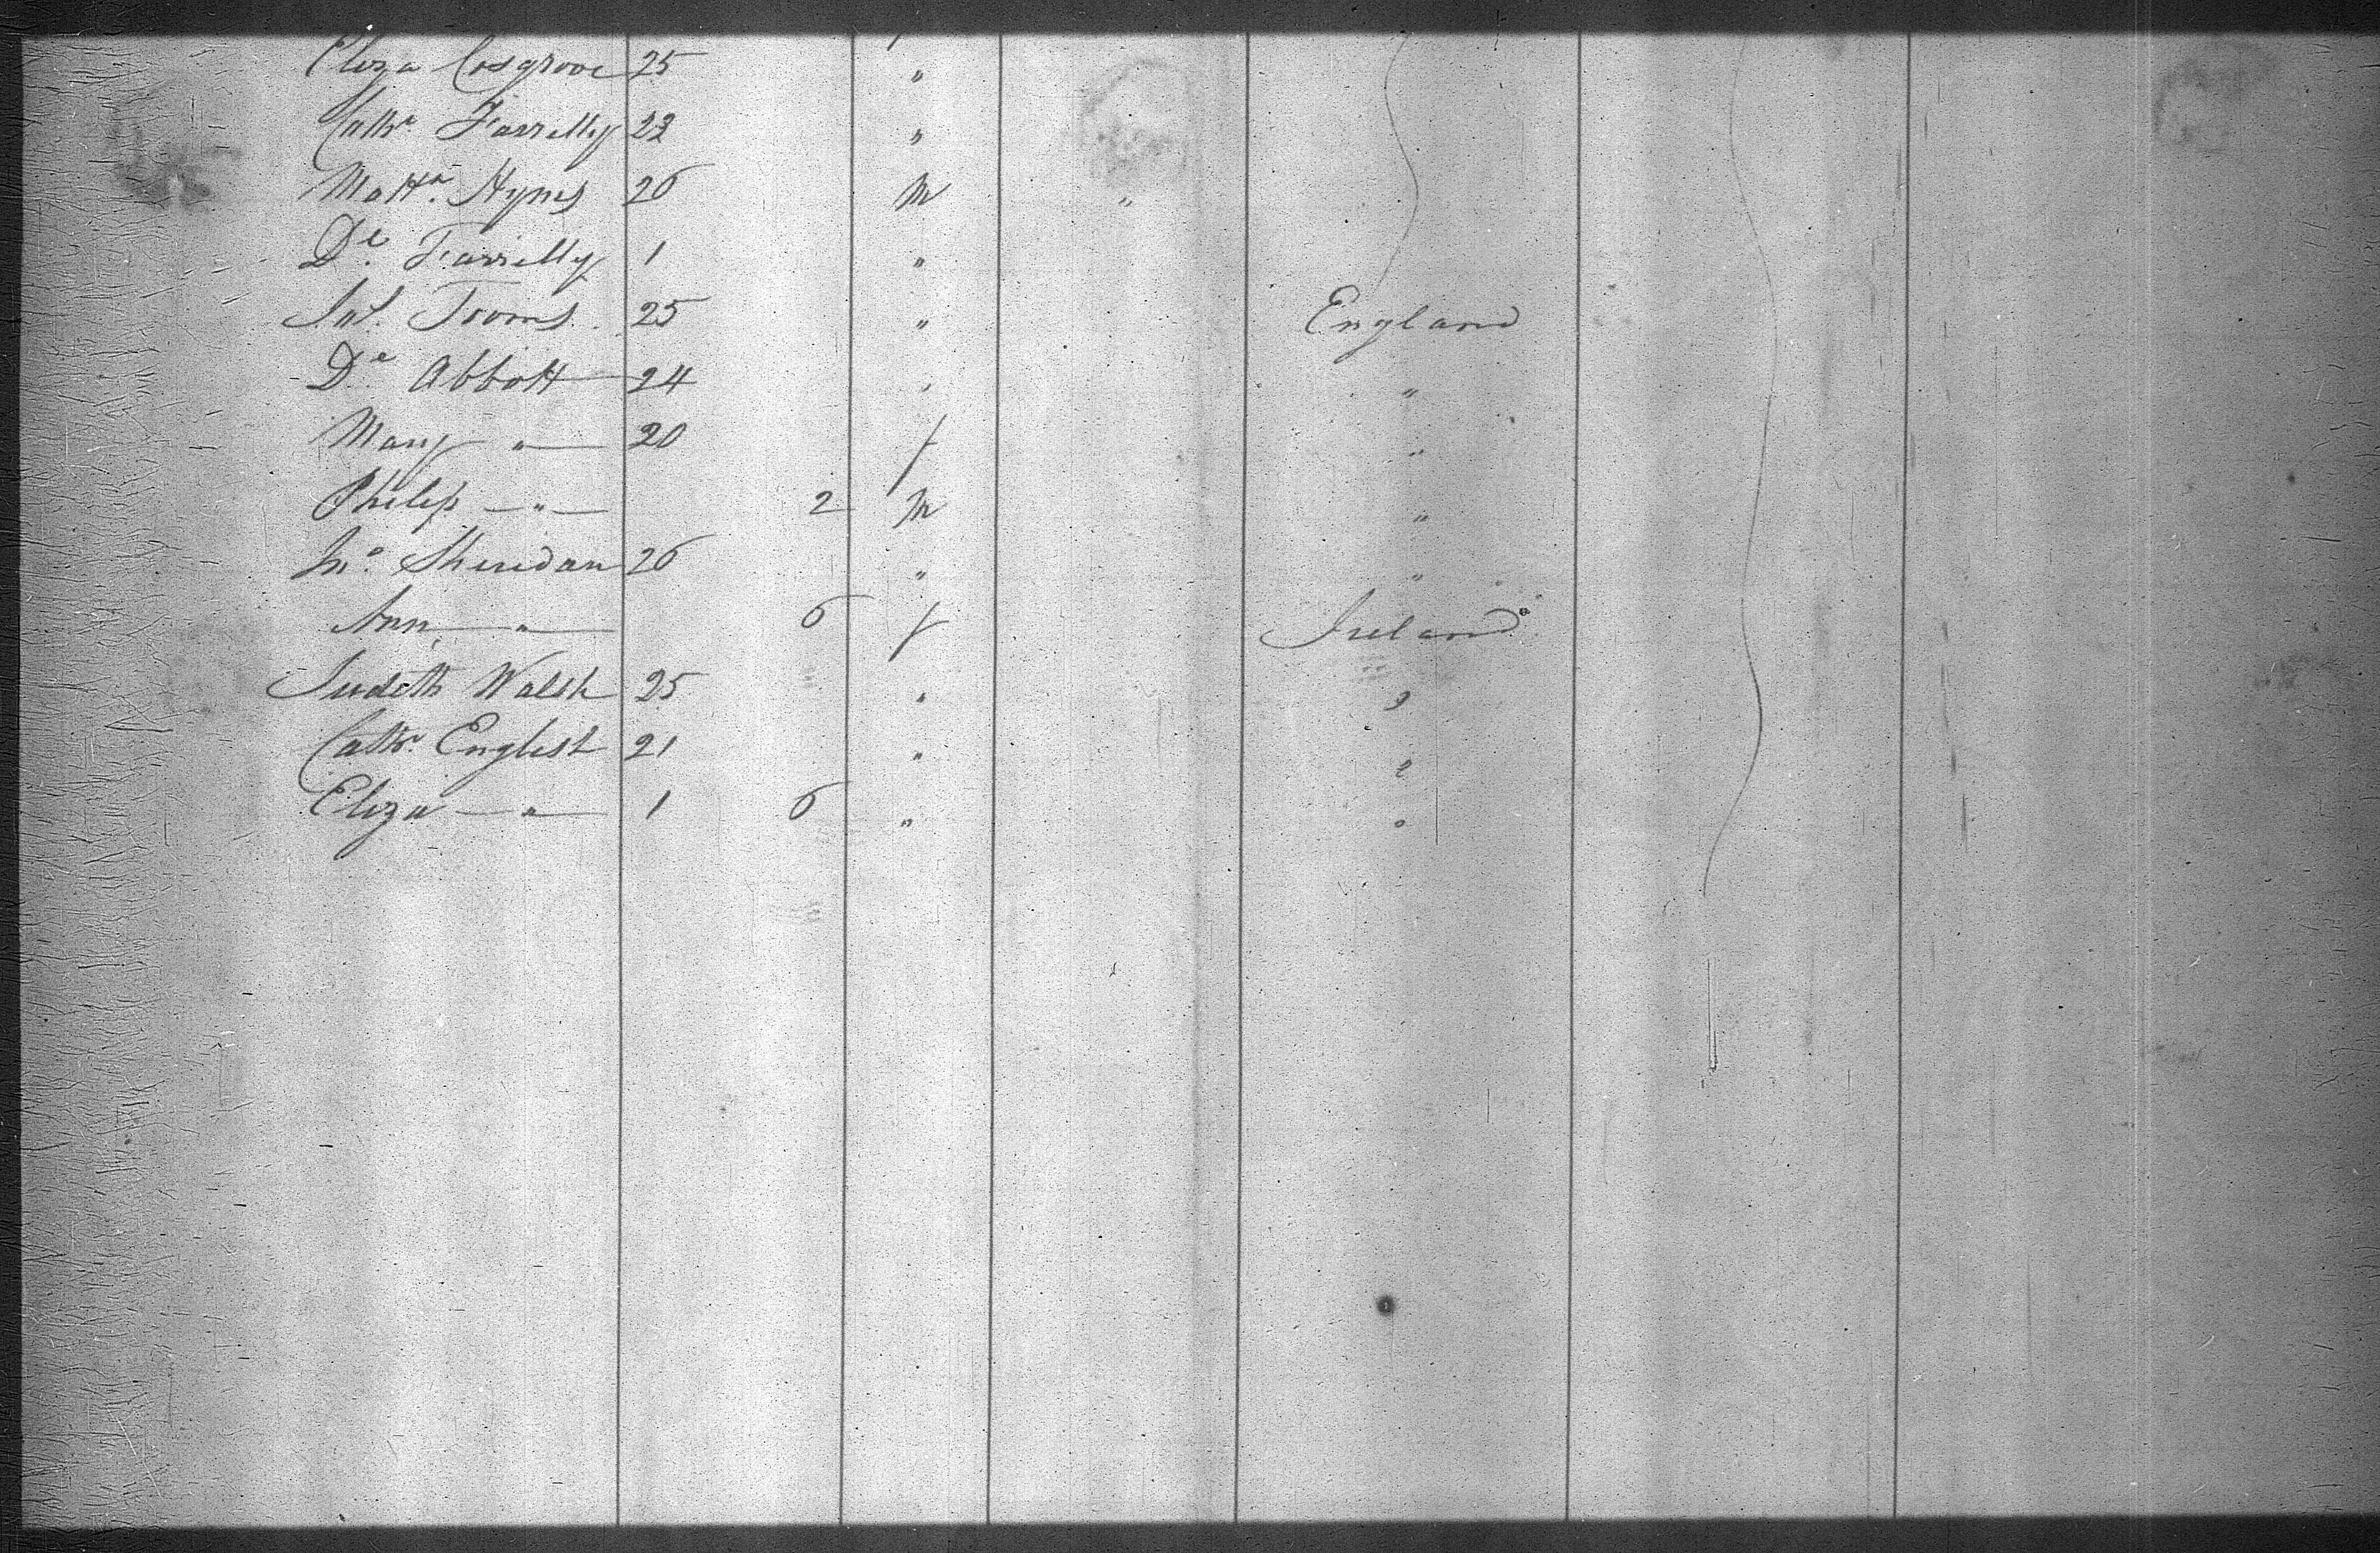 Eliza Cosgrove 25 "
Cathe Farrelly 22 "
Mattw Hynes 26 M "
De Farrelly 1 "
25 " England
De Abbott 24 " "
Mary " 20 f "
Philip " 2 M "
Jno. Sheridan 26 " "
Ann " 6 f Ireland
Judith Walsh 25 " "
Cathe English 21 " "
Eliza " 1 6 " "